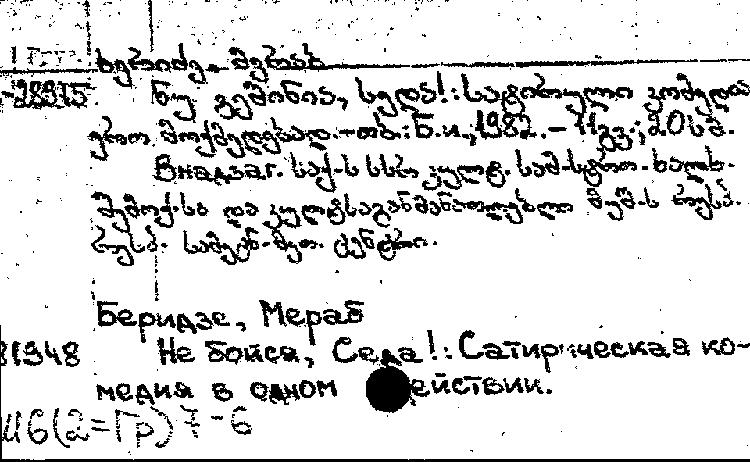 Гру.
ბერიძე, მერაბ
-28975 ნუ გეშინია, სედა!: სატირული კომედია
ერთ მოქმედებად.-თბ.: Б.и., 1982.- 11გვ.; 20სმ.
В надзаг. საქ-ს სსრ კულტ. სამ-სტრო. ხალხ.
შემოქ-სა და კულტსაგანმანათლებლო მუშ-ს რესპ.
სამეც.-მეთ. ცენტრი.
Беридзе, Мераб
81948 Не бойся, Седа!: Сатирическая ко-
медия в одном действии.
Ш6(2=Гр)7-6